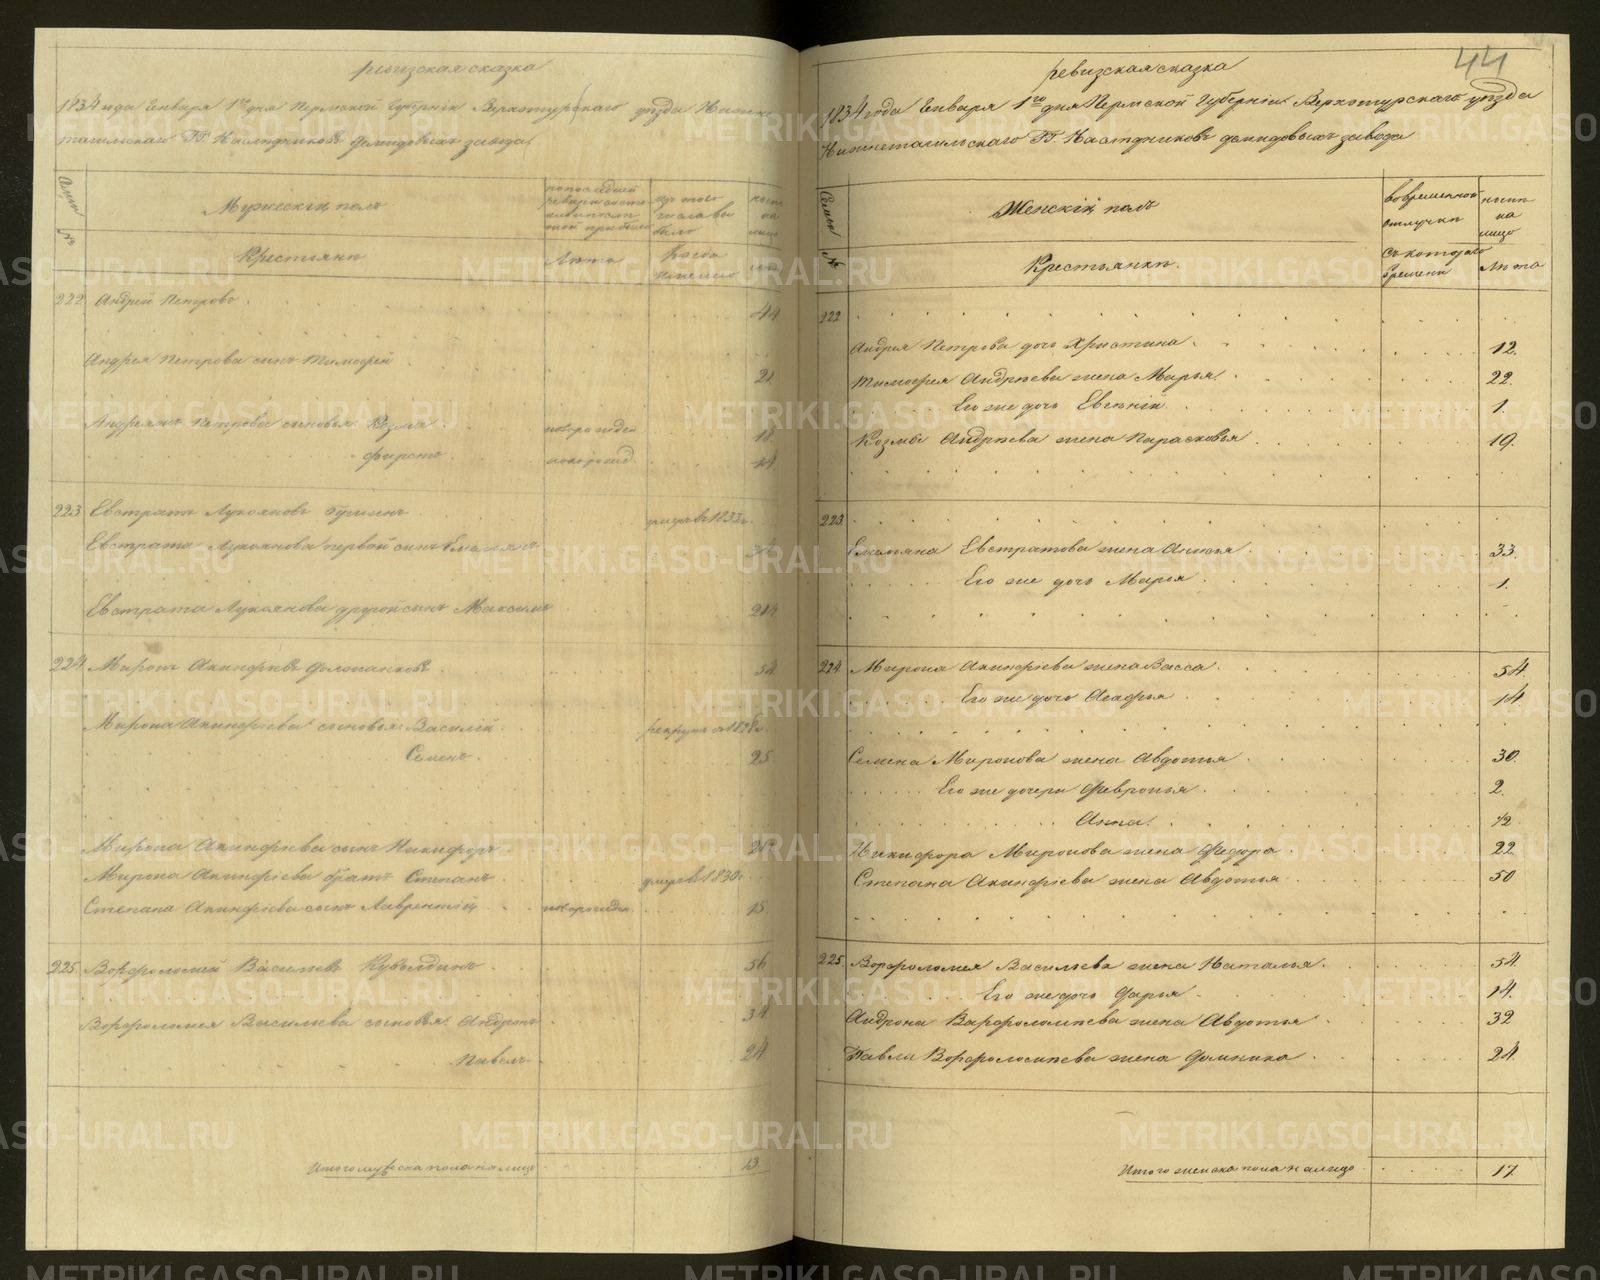 ревизская сказка
1834 года Генваря 1го дня Пермской Губернiи Верхотурскаго уѣзда Нижне
тагильскаго ГГ. Наслѣдниковъ Демидовыхъ завода
Семьи №
Мужескiй полъ
Крестьяне
Лѣта
Когда именно
222 Андрей Петровъ 44
Андрея Петрова сынъ Тимофей 21
Андреяна Петрова сыновья Козма новорожден 18
Фирстъ новорожд 14
223 Евстратъ Лукояновъ умеръ въ 1833г.
Евстрата Лукоянова первой сынъ Емельянъ
Евстрата Лукоянова другой сынъ Максимъ
224 Миронъ Акинфiевъ 54
Мирона Акинфiева сыновья: Василiй рекрутъ въ
Семенъ 25
Мирона Акинфiева сынъ Никифоръ
Мирона Акинфiева братъ Степанъ умеръ въ 1830г
Степана Акинфiева сынъ Лаврентiй новорожден 15
225 Ворфоломей Васильевъ Кувалдинъ 56
Ворфоломея Васильева сыновья: Андронъ 34
Павелъ 24
Итого мужеска пола на лицо 13
44
ревизская сказка
1834 года Генваря 1го дня Пермской Губернiи Верхотурскаго уѣзда
Нижнетагильскаго ГГ. Наслѣдниковъ Демидовыхъ завода
Семьи №
Женскiй полъ
во временной отлучкѣ
нынѣ на лицо
Крестьянки.
съ котораго времени
Лѣта
222
Андрея Петрова дочь Христина 12.
Тимофея Андрѣева жена Марья 22.
Его же дочь Евгѣнiй 1.
Козмы Андрѣева жена Парасковья 19.
223
Емельяна Евстратова жена Анисья 33.
Его же дочь Марья 1.
224 Мирона Акинфiева жена Васса 54.
Его же дочь Агафья 14.
Семена Миронова жена Авдотья 30.
Его же дочери Февронья 2.
Анна 1/2
Никифора Миронова жена Федора 22
Степана Акинфiева жена Авдотья 50
225. Ворфоломея Васильева жена Наталья 54.
Его же дочь Дарья 14.
Андрона Варфоломѣева жена Авдотья 32
Павла Ворфоломѣева жена Домника 24.
Итого женска пола на лицо 17
METRIKI.GASO-URAL.RU